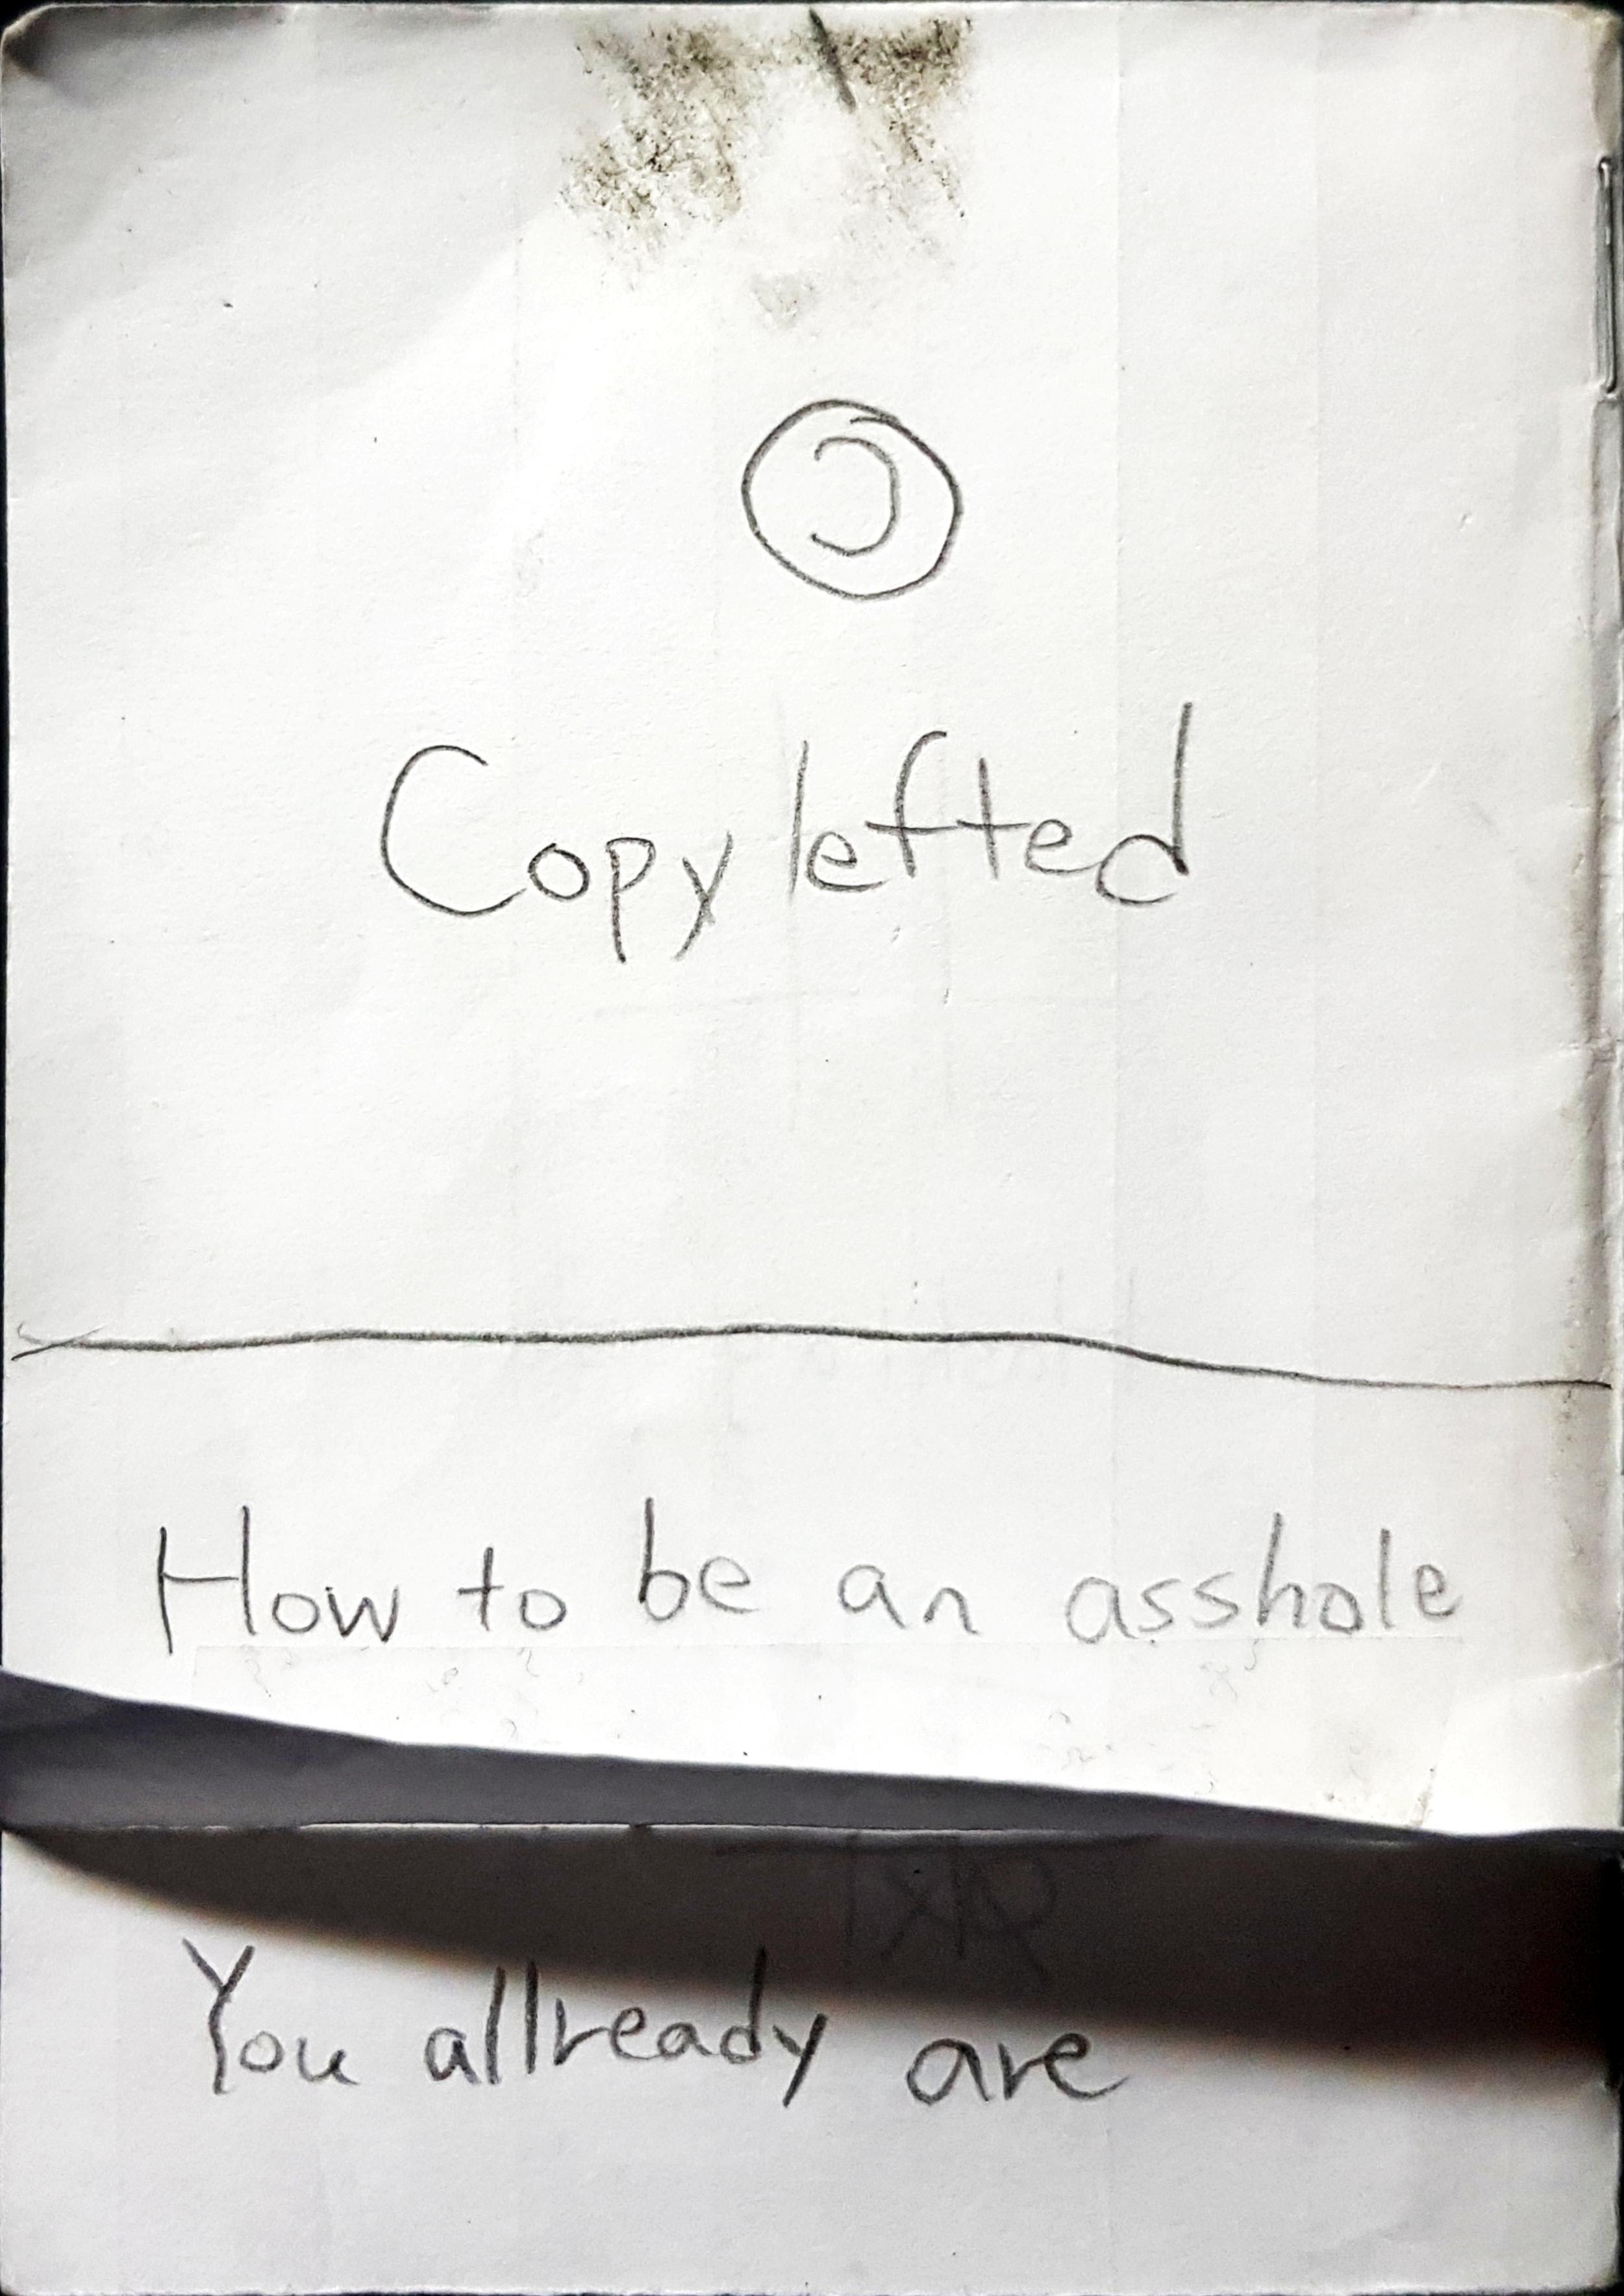 🄯
Copylefted
How to be an asshole
You allready are